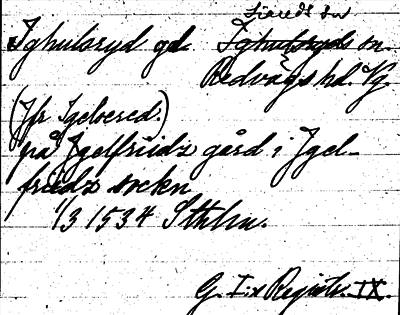 Liareds sn
Ighulsryd gd Ighulsryds sn.
Redvägs hd Vg
(Jfr Igelsered.)
på Jgelfriidz gård i Jgel-
friidz socken
1/3 1534 Sthlm.
G. I:s Registr. IX.